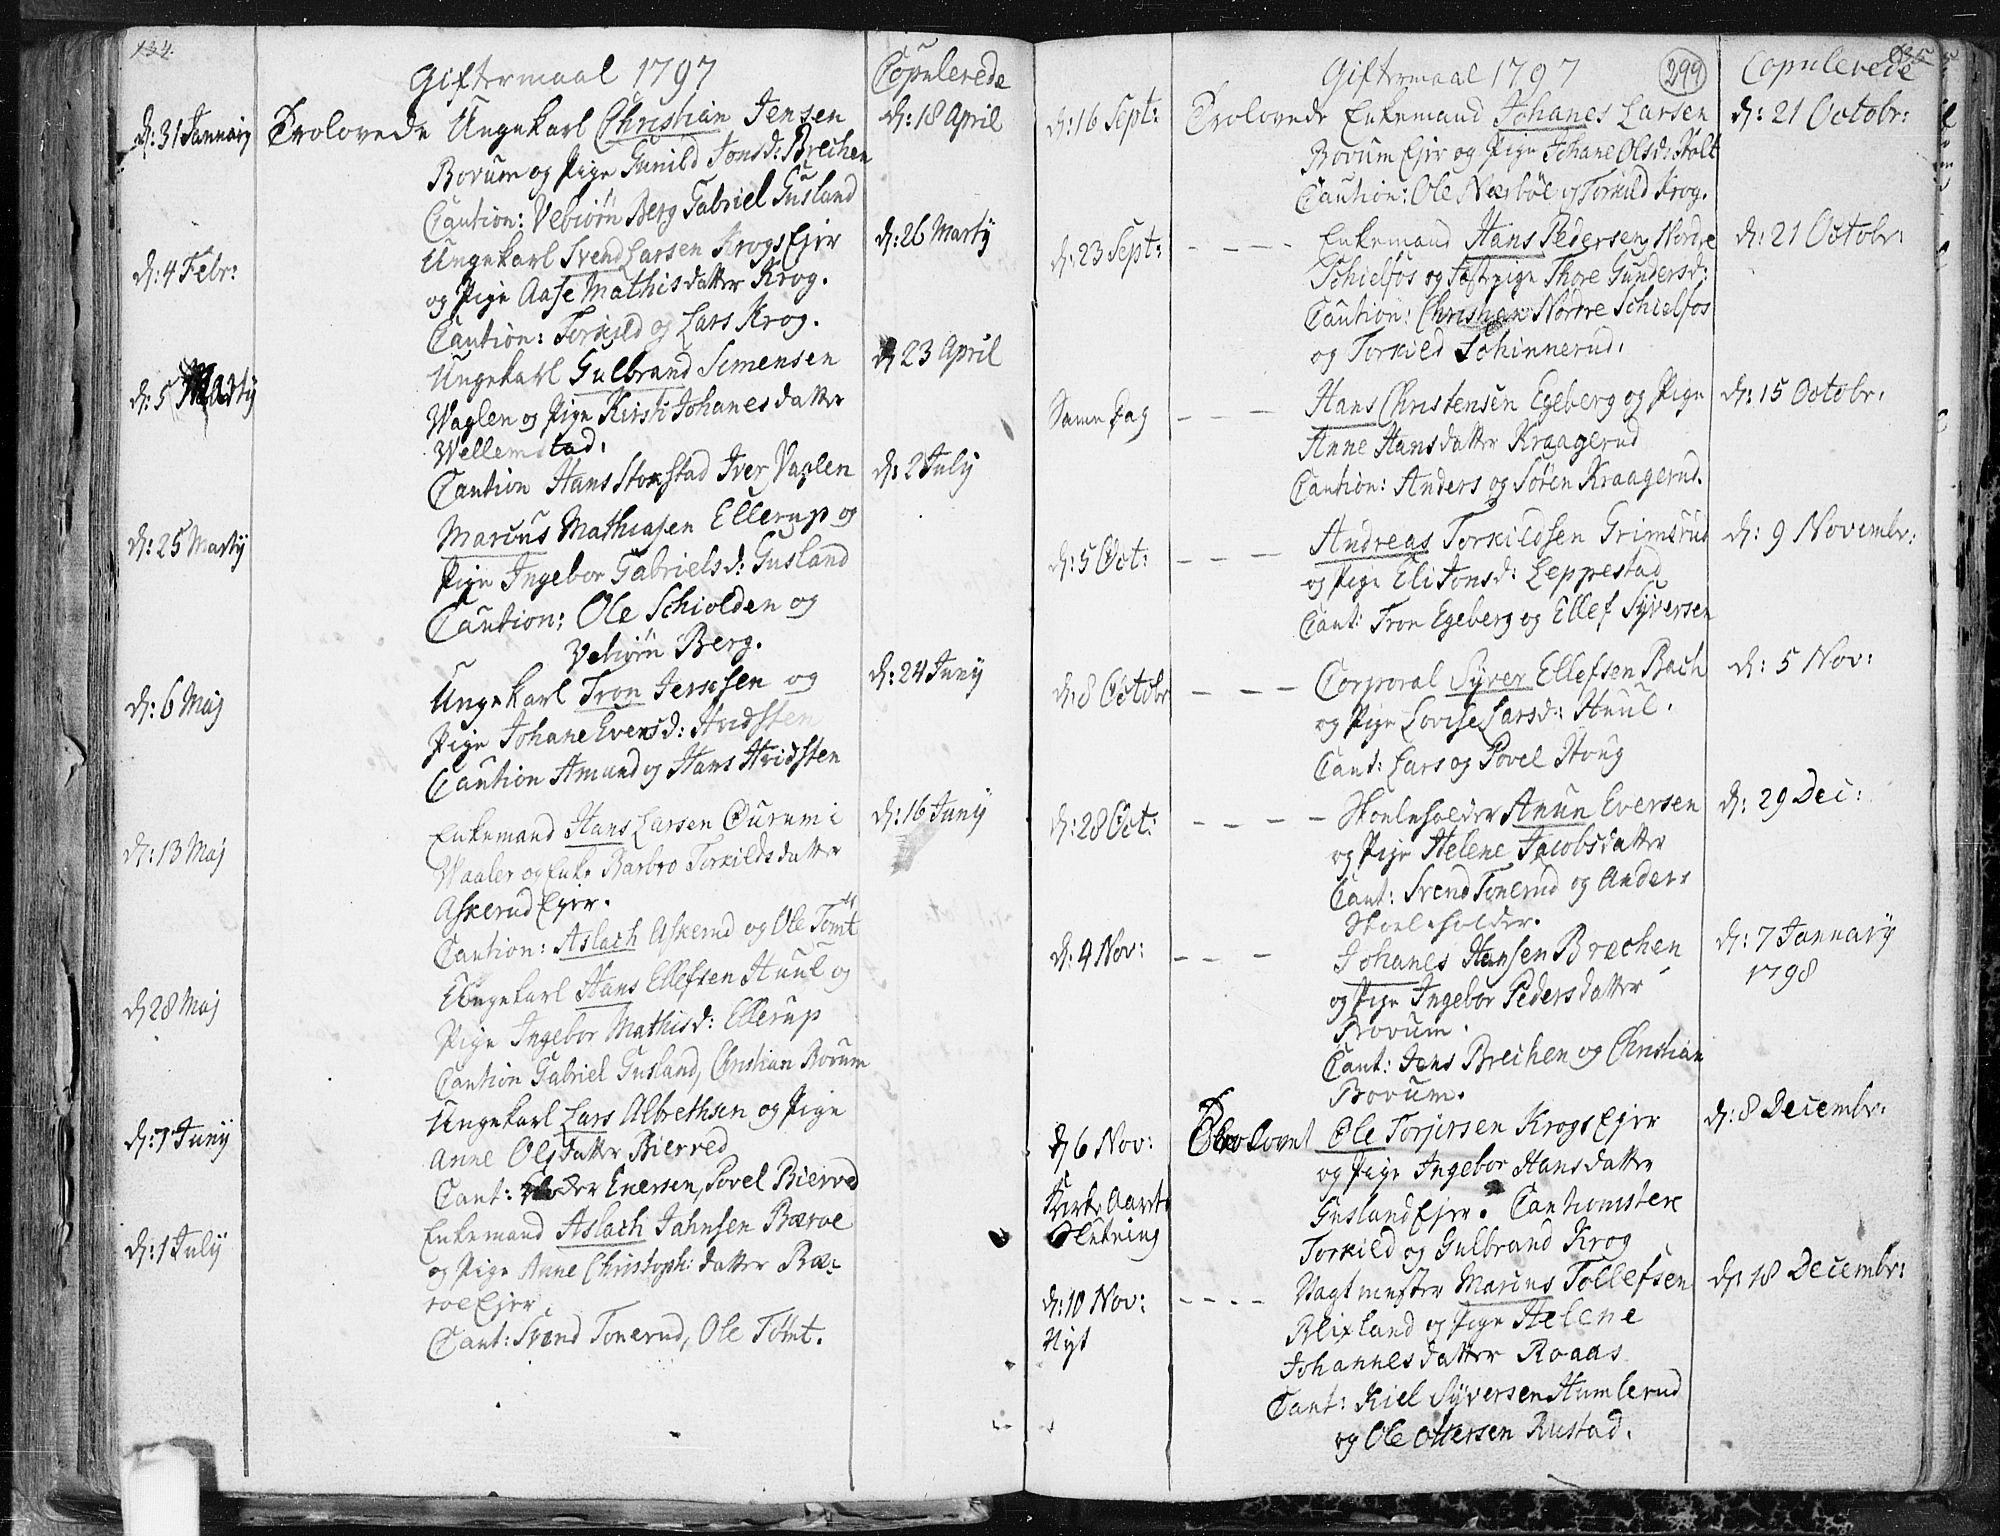 134.
Giftermaal 1797
Copulerede
d: 31 January Trolovede Ungekarl Christian Jensen
d: 18 April
Borum og Pige Gunild Jonsd: Brechen
Caution: Vebiörn Berg Gabriel Gusland
d: 4 Febr:
Ungekarl Svend Larsen Krogs Ejer
d: 26 Marty
og Pige Aase Mathisdatter Krog.
Caution: Torkild og Lars Krog.
d: 5 Marty
Ungekarl Gulbrand Simensen
d 23 April
Waglen og Pige Kirsti Johanesdatter
Wellemstad.
Caution Hans Stokstad Iver Vaglen
d: 2 July
d: 25 Marty
Marcus Mathiasen Ellerup og
Pige Ingebor Gabrielsd: Gusland
Caution: Ole Schiolden og
Vebiörn Berg.
d: 6 Maj
Ungekarl Tron Jensen og
d: 24 Juny
Pige Johane Eversd: Hvidsten
Caution Amund og Hans Hvidsten
d: 13 Maj
Enkemand Hans Larsen Ourum i
d: 16 Juny
Waaler og Enke Barbro Torkildsdatter
Askerud Ejer.
Caution: Aslach Askerud og Ole Tomt
d 28 Maj
Ungekarl Hans Ellefsen Huul og
Pige Ingebor Mathisd: Ellerup
Caution Gabriel Gusland, Christian Borum
d: 7 Juny
Ungekarl Lars Albrethsen og Pige
Anne Olsdatter Bierved
Caut: Peder Enersen, Povel Bierved
d: 1 July
Enkemand Aslach Jahnsen Bæroe
og Pige Anne Christoph: datter Bæ-
roe Ejer
Caut: Svend Tonerud, Ole Tömt.
135
299
Giftermaal 1797
Copulerede
d: 16 Sept: Trolovede Enkemand Johanes Larsen
d: 21 Octobr:
Borum Ejer og Pige Johane Olsd: Holt
Caution: Ole Næsböe og Torkild Krog.
d: 23 Sept: - - - - Enkemand Hans Pedersen Nordre
d: 21 Octobr:
Schielfos og Fæstepige Thore Gundersd:
Caution: Christian Nordre Schielfos
og Torkild Schinnerud.
Samme Dag - - - Hans Christensen Egeberg og Pige
d: 15 Octobr.
Anne Hansdatter Kraagerud
Caution: Anders og Sören Kraagerud.
d: 5 Oct: - - - Andreas Torkildsen Grimsrud
d: 9 Novembr:
og Pige Eli Jonsd: Leppestad
Caut: Tron Egeberg og Ellef Syversen
d: 8 Octobr - - - Corporal Syver Ellefsen Bach
d: 5 Nov:
og Pige Lovise Larsd: Huul.
Caut: Lars og Povel Houg
d: 28 Oct: - - - - Skoleholder Anun Eversen
d: 29 Dec:
og Pige Helene Jacobsdatter
Caut: Svend Tonerud og Anders
Skoleholder.
d: 4 Nov: - - - Johanes Hansen Brechen
d: 7 January
1798
og Pige Ingebor Pedersdatter
Borum.
Caut: Jens Brechen og Christian
Borum.
d 6 Nov: Trolovet Ole Torjersen Krogs Ejer
d: 8 Decembr:
og Pige Ingebor Hansdatter
Kirke Aarets
Slutning
Gusland Ejer. Cautionister
Torkild og Gulbrand Krog
d: 10 Nov: - - - - Vagtmester Marcus Tollefsen
d: 18 Decembr:
Nyt
Blixland og Pige Helene
Johannesdatter Roaas
Caut: Kiel Syversen Humlerud
og Ole Ottersen Rustad.